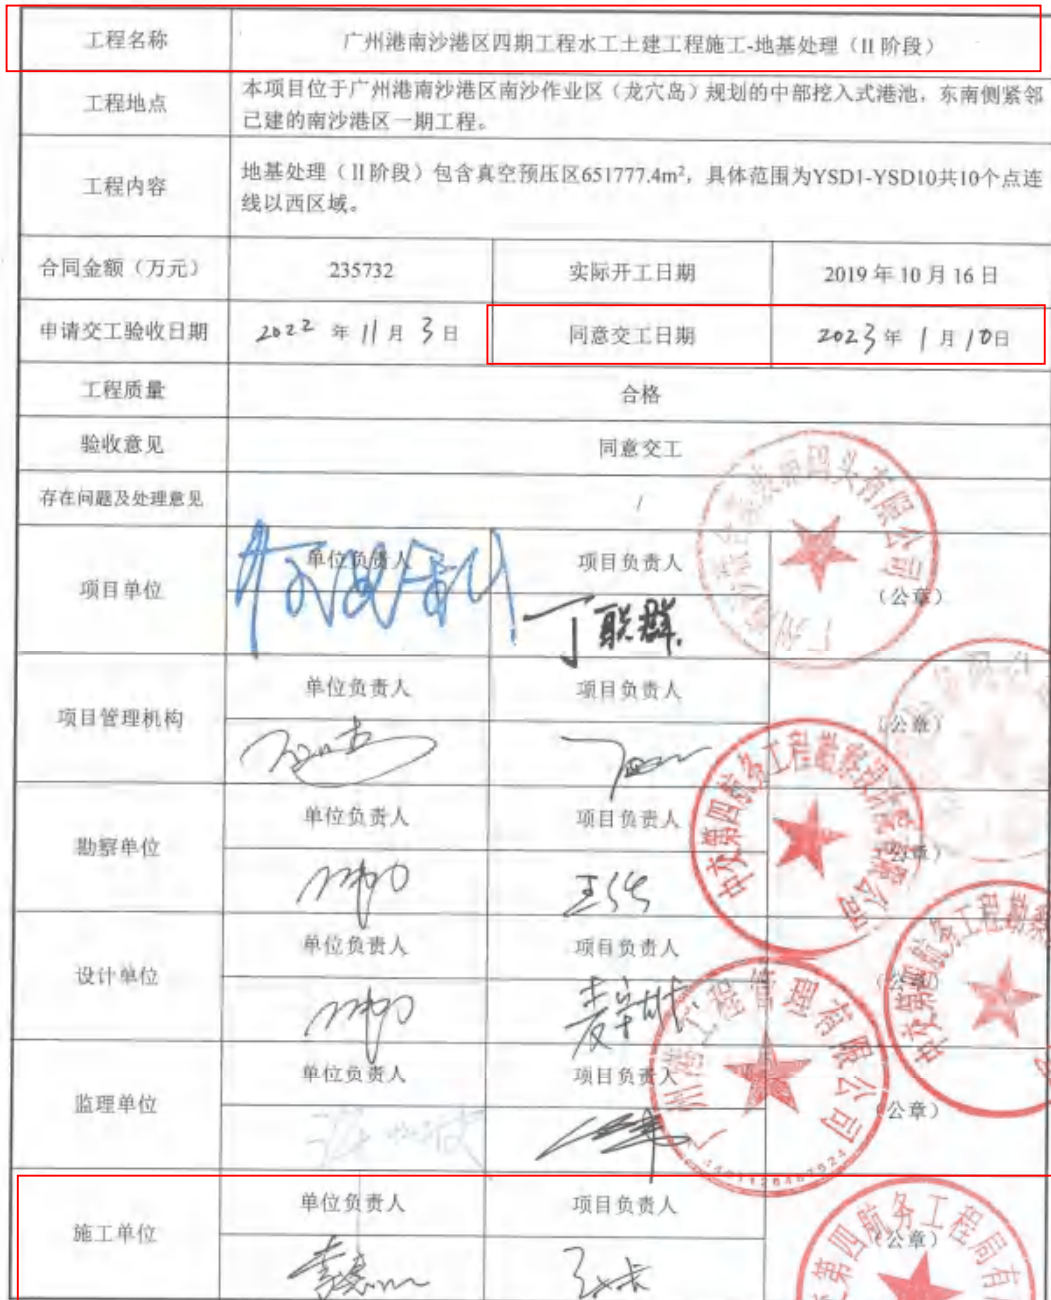 工程名称
广州港南沙港区四期工程水工土建工程施工-地基处理（II 阶段）
工程地点
本项目位于广州港南沙港区南沙作业区（龙穴岛）规划的中部挖入式港池，东南侧紧邻
已建的南沙港区一期工程。
工程内容
地基处理（II阶段）包含真空预压区651777.4m²，具体范围为YSD1-YSD10共10个点连
线以西区域。
合同金额（万元）
235732
实际开工日期
2019 年 10 月 16 日
申请交工验收日期
2022 年 11 月 3 日
同意交工日期
2023 年 1 月 10 日
工程质量
合格
验收意见
同意交工
存在问题及处理意见
/
项目单位
单位负责人
项目负责人
丁联群
（公章）
码头有限公司
项目管理机构
单位负责人
项目负责人
（公章）
勘察单位
单位负责人
项目负责人
（公章）
中交第四航务工程勘察设计院有限公司
设计单位
单位负责人
项目负责人
（公章）
航务工程勘察
监理单位
单位负责人
项目负责人
（公章）
广州港工程管理有限公司
施工单位
单位负责人
项目负责人
（公章）
第四航务工程局有